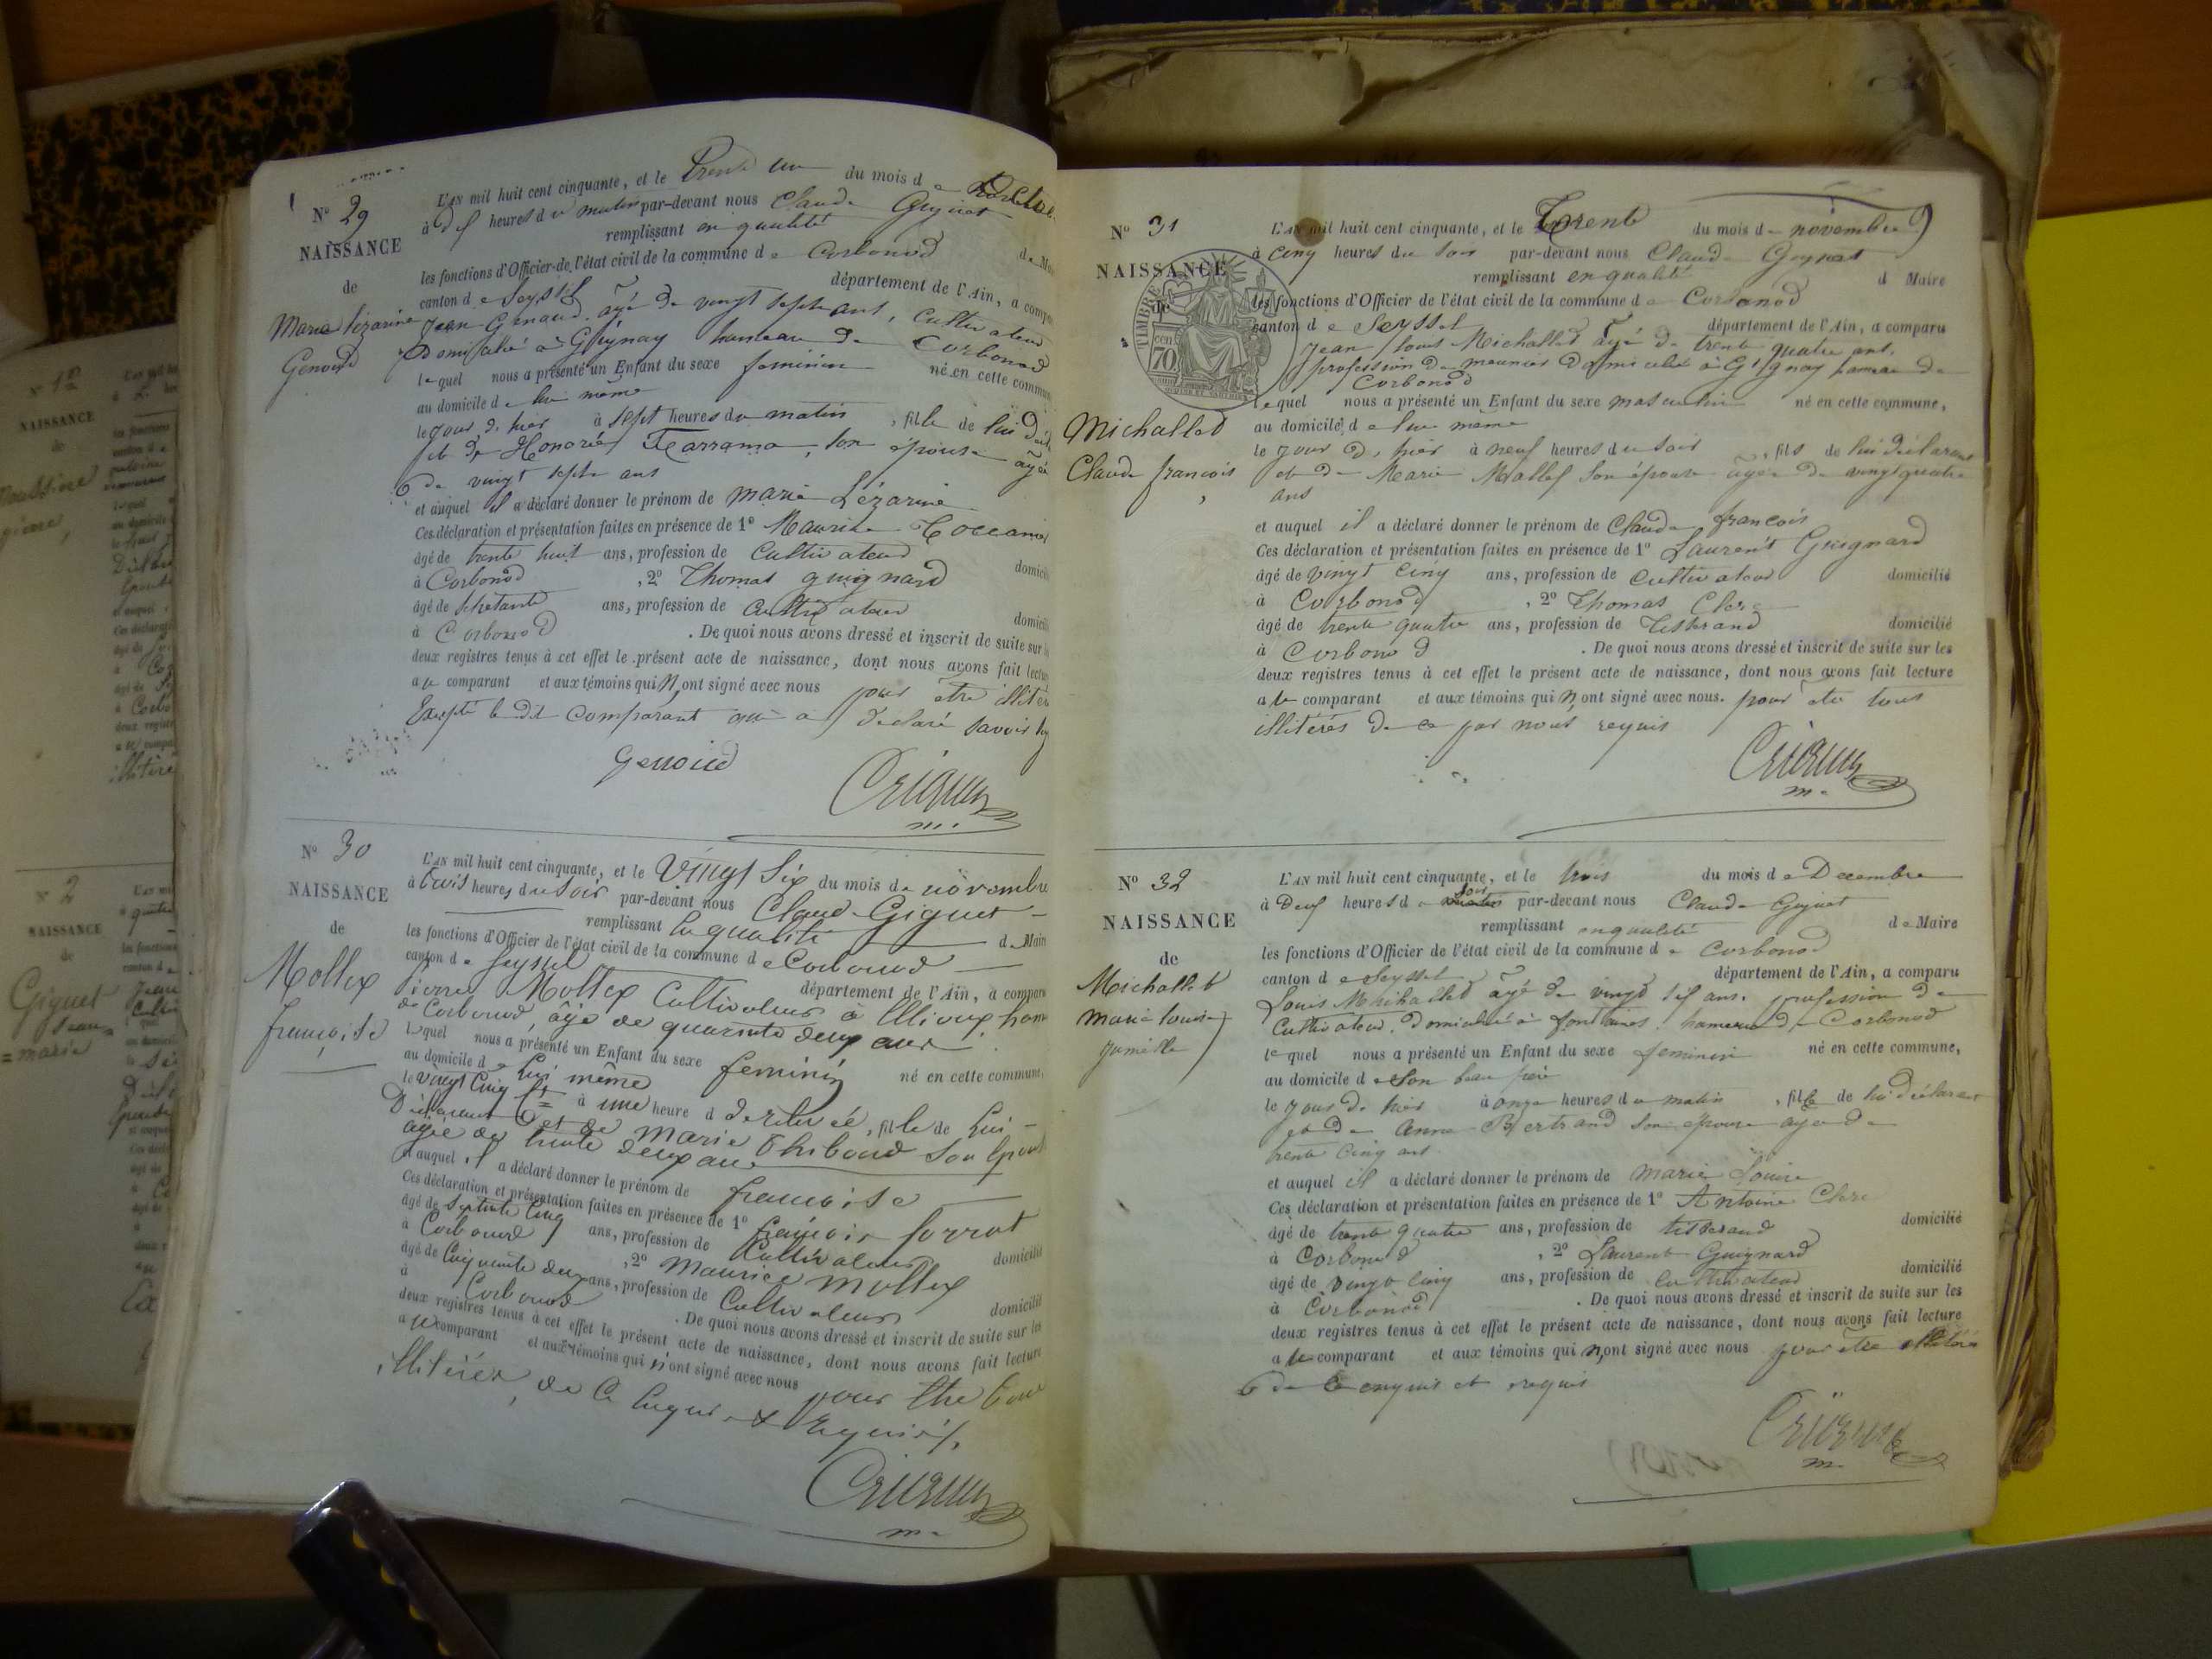 N° 29
NAISSANCE
de
Marie Lézarine
Genoud
L'AN mil huit cent cinquante, et le Trente un du mois d
à dix heures du matin par-devant nous Claude Giguet
remplissant en qualité de Mai
les fonctions d'Officier de l'état civil de la commune de Corbonod
canton de Seyssel département de l'Ain, a compa
Jean Genoud âgé de vingt sept ans, cultivateur
Domicilié à Gignay hameau de Corbonod
lequel nous a présenté un Enfant du sexe feminin né en cette commune
au domicile de lui même
le jour d'hier à sept heures du matin, fille de lui Décl
et de Honorée son épouse âgée
de vingt sept ans
et auquel il a déclaré donner le prénom de marie Lézarine
Ces déclaration et présentation faites en présence de 1° Maurice
âgé de trente huit ans, profession de Cultivateur domicili
à Corbonod, 2° Thomas guignard
âgé de ans, profession de Cultivateur domicili
à Corbonod. De quoi nous avons dressé et inscrit de suite sur
deux registres tenus à cet effet le présent acte de naissance, dont nous avons fait lectur
au comparant et aux témoins qui n'ont signé avec nous pour être illitér
Excepté le dit comparant qui a déclaré savoir
Genoud
m.
N° 30
NAISSANCE
de
Mollex
françoise
L'AN mil huit cent cinquante, et le Vingt Six du mois de novembre
à trois heures du soir par-devant nous Claude Giguet
remplissant la qualité de Mair
les fonctions d'Officier de l'état civil de la commune de Corbonod
canton de Seyssel département de l'Ain, a comparu
Pierre Mollex Cultivateur à hame
de Corbonod, âgé de quarante deux ans
lequel nous a présenté un Enfant du sexe feminin né en cette commune,
au domicile de lui même
le vingt Cinq à une heure de relevée, fille de Lui
Déclarant et de marie Thiboud Son Epous
âgée de trente deux ans
et auquel il a déclaré donner le prénom de françoise
Ces déclaration et présentation faites en présence de 1° françois
âgé de Septante Cinq ans, profession de Cultivateur domicilié
à Corbonod, 2° maurice mollex
âgé de Cinquante deux ans, profession de Cultivateur domicilié
à Corbonod. De quoi nous avons dressé et inscrit de suite sur les
deux registres tenus à cet effet le présent acte de naissance, dont nous avons fait lecture
au comparant et aux témoins qui n'ont signé avec nous pour être tous
illitérés, de Ce Enquis & Requis.
m.
N° 31
NAISSANCE
de
TIMBRE
70
Michallet
Claude françois
L'AN mil huit cent cinquante, et le Trente du mois de novembre
à cinq heures du soir par-devant nous Claude Giguet
remplissant en qualité d Maire
les fonctions d'Officier de l'état civil de la commune de Corbonod
canton de Seyssel département de l'Ain, a comparu
Jean Louis Michallet âgé de trente quatre ans,
profession de meunier Domicilié à Gignay hameau de
Corbonod
lequel nous a présenté un Enfant du sexe masculin né en cette commune,
au domicile de lui même
le jour d'hier à neuf heures du soir, fils de lui déclarant
et de Marie Mollex son épouse âgée de vingt quatre
ans
et auquel il a déclaré donner le prénom de Claude françois
Ces déclaration et présentation faites en présence de 1° Laurent Guignard
âgé de vingt cinq ans, profession de cultivateur domicilié
à Corbonod, 2° Thomas Clerc
âgé de trente quatre ans, profession de Tisserand domicilié
à Corbonod. De quoi nous avons dressé et inscrit de suite sur les
deux registres tenus à cet effet le présent acte de naissance, dont nous avons fait lecture
au comparant et aux témoins qui n'ont signé avec nous. pour etre tous
illitérés de ce par nous requis
m.
N° 32
NAISSANCE
de
Michallet
marie louise
jumelle
L'AN mil huit cent cinquante, et le trois du mois de Decembre
à Deux heures du soir par-devant nous Claude Giguet
remplissant en qualité de Maire
les fonctions d'Officier de l'état civil de la commune de Corbonod
canton de Seyssel département de l'Ain, a comparu
Louis Michallet âgé de vingt six ans, profession de
Cultivateur, domicilié à fontaines hameau de Corbonod
lequel nous a présenté un Enfant du sexe feminin né en cette commune,
au domicile de Son beau frère
le jour d'hier à onze heures du matin, fille de lui déclarant
et de Anne Bertrand son épouse agée de
trente cinq ans
et auquel il a déclaré donner le prénom de marie Louise
Ces déclaration et présentation faites en présence de 1° Antoine Clerc
âgé de trente quatre ans, profession de tisserand domicilié
à Corbonod, 2° Laurent Guignard
âgé de vingt cinq ans, profession de cultivateur domicilié
à Corbonod. De quoi nous avons dressé et inscrit de suite sur les
deux registres tenus à cet effet le présent acte de naissance, dont nous avons fait lecture
au comparant et aux témoins qui n'ont signé avec nous pour être illitérés
de ce enquis et requis
m.
N° 2
NAISSANCE
de
Giguet
Jean
=marie